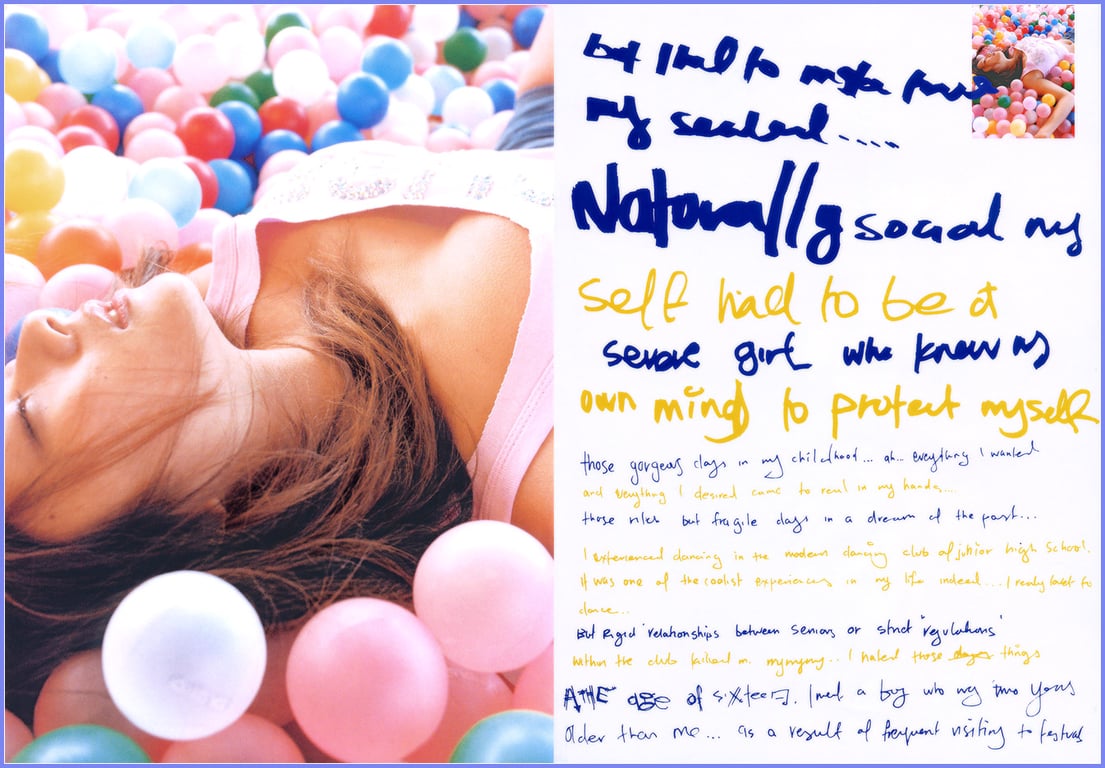 but I had to make
my sealed....
Naturally social my
self had to be a
severe girl who know my
own mind to protect myself
those gorgeous days in my childhood... ah... everything I wanted
and everything I desired came to real in my hands....
those but fragile days in a dream of the past...
I experienced dancing in the modern dancing club of junior high school.
it was one of the coolist experiences in my life indeed... I really loved to
dance..
But Rigid 'relationships between seniors or strict 'regulations'
within the club me mymymy.. I hated those things
A THE age of sixteen, I met a boy who my two years
Older than me... as a result of frequent visiting to festival